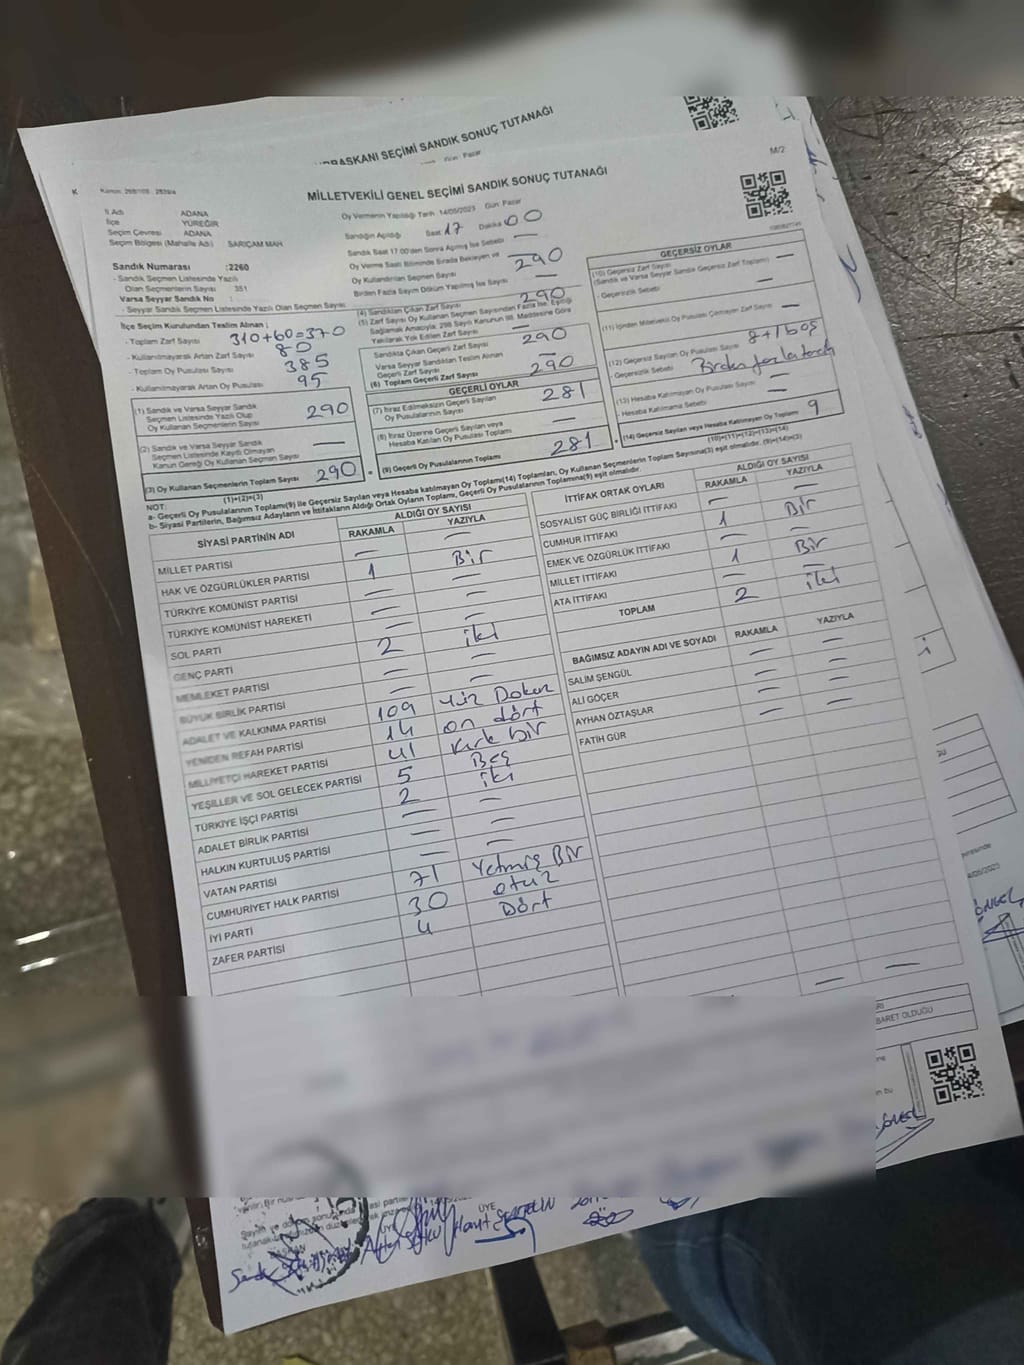 BAŞKANI SEÇİMİ SANDIK SONUÇ TUTANAĞI
Gün: Pazar
M/2
K
MİLLETVEKİLİ GENEL SEÇİMİ SANDIK SONUÇ TUTANAĞI
İl Adı ADANA
İlçe YÜREĞİR
Seçim Çevresi ADANA
Seçim Bölgesi (Mahalle Adı) SARIÇAM MAH
Oy Vermenin Yapıldığı Tarih 14/05/2023 Gün: Pazar
Sandığın Açıldığı Saat 17 Dakika 00
Sandık Saat 17.00'den Sonra Açılmış İse Sebebi —
Oy Verme Saati Bitiminde Sırada Bekleyen ve
Oy Kullandırılan Seçmen Sayısı 290
Birden Fazla Sayım Döküm Yapılmış İse Sayısı —
Sandık Numarası :2260
- Sandık Seçmen Listesinde Yazılı
Olan Seçmenlerin Sayısı 351
Varsa Seyyar Sandık No :
- Seyyar Sandık Seçmen Listesinde Yazılı Olan Seçmen Sayısı
İlçe Seçim Kurulundan Teslim Alınan ;
- Toplam Zarf Sayısı 310+60=370
- Kullanılmayarak Artan Zarf Sayısı 80
- Toplam Oy Pusulası 385
- Kullanılmayarak Artan Oy Pusulası 95
(1) Sandık ve Varsa Seyyar Sandık
Seçmen Listesinde Yazılı Olup
Oy Kullanan Seçmenlerin Sayısı 290
(2) Sandık ve Varsa Seyyar Sandık
Seçmen Listesinde Kaydı Olmayan
Kanun Gereği Oy Kullanan Seçmen Sayısı —
(3) Oy Kullanan Seçmenlerin Toplam Sayısı 290
(1)+(2)=(3)
(4) Sandıktan Çıkan Zarf Sayısı 290
(5) Zarf Sayısı Oy Kullanan Seçmen Sayısından Fazla İse, Eşitliği
Sağlamak Amacıyla; 298 Sayılı Kanunun 98. Maddesine Göre
Yakılarak Yok Edilen Zarf Sayısı —
Sandıkta Çıkan Geçerli Zarf Sayısı 290
Varsa Seyyar Sandıktan Teslim Alınan
Geçerli Zarf Sayısı —
(6) Toplam Geçerli Zarf Sayısı 290
GEÇERLİ OYLAR
(7) İtiraz Edilmeksizin Geçerli Sayılan
Oy Pusulalarının Sayısı 281
(8) İtiraz Üzerine Geçerli Sayılan veya
Hesaba Katılan Oy Pusulası Toplamı —
(9) Geçerli Oy Pusulalarının Toplamı 281
GEÇERSİZ OYLAR
(10) Geçersiz Zarf Sayısı —
(Sandık ve Varsa Seyyar Sandık Geçersiz Zarf Toplamı)
- Geçersizlik Sebebi: —
(11) İçinden Milletvekili Oy Pusulası Çıkmayan Zarf Sayısı —
(12) Geçersiz Sayılan Oy Pusulası Sayısı 8+1 boş
- Geçersizlik Sebebi Birden fazla
(13) Hesaba Katılmayan Oy Pusulası Sayısı —
- Hesaba Katılmama Sebebi —
(14) Geçersiz Sayılan veya Hesaba Katılmayan Oy Toplamı 9
(10)+(11)+(12)+(13)=(14)
NOT:
a- Geçerli Oy Pusulalarının Toplamı(9) ile Geçersiz Sayılan veya Hesaba Katılmayan Oy Toplamı(14) Toplamları, Oy Kullanan Seçmenlerin Toplam Sayısına(3) eşit olmalıdır. (9)+(14)=(3)
b- Siyasi Partilerin, Bağımsız Adayların ve İttifakların Aldığı Ortak Oyların Toplamı, Geçerli Oy Pusulalarının Toplamına(9) eşit olmalıdır.
SİYASİ PARTİNİN ADI ALDIĞI OY SAYISI
RAKAMLA YAZIYLA
MİLLET PARTİSİ — —
HAK VE ÖZGÜRLÜKLER PARTİSİ 1 Bir
TÜRKİYE KOMÜNİST PARTİSİ — —
TÜRKİYE KOMÜNİST HAREKETİ — —
SOL PARTİ — —
GENÇ PARTİ 2 iki
MEMLEKET PARTİSİ — —
BÜYÜK BİRLİK PARTİSİ —
ADALET VE KALKINMA PARTİSİ 109 Yüz Dokuz
YENİDEN REFAH PARTİSİ 14 on dört
MİLLİYETÇİ HAREKET PARTİSİ 41 Kırk bir
YEŞİLLER VE SOL GELECEK PARTİSİ 5 Beş
TÜRKİYE İŞÇİ PARTİSİ 2 iki
ADALET BİRLİK PARTİSİ — —
HALKIN KURTULUŞ PARTİSİ — —
VATAN PARTİSİ — —
CUMHURİYET HALK PARTİSİ 71 Yetmiş Bir
İYİ PARTİ 30 otuz
ZAFER PARTİSİ 4 Dört
İTTİFAK ORTAK OYLARI ALDIĞI OY SAYISI
RAKAMLA YAZIYLA
SOSYALİST GÜÇ BİRLİĞİ İTTİFAKI — —
CUMHUR İTTİFAKI 1 Bir
EMEK VE ÖZGÜRLÜK İTTİFAKI — —
MİLLET İTTİFAKI 1 Bir
ATA İTTİFAKI — —
TOPLAM 2 iki
BAĞIMSIZ ADAYIN ADI VE SOYADI RAKAMLA YAZIYLA
SALİM ŞENGÜL — —
ALİ GÖÇER — —
AYHAN ÖZTAŞLAR — —
FATİH GÜR — —
— —
BARET OLDUĞU
ÜYE